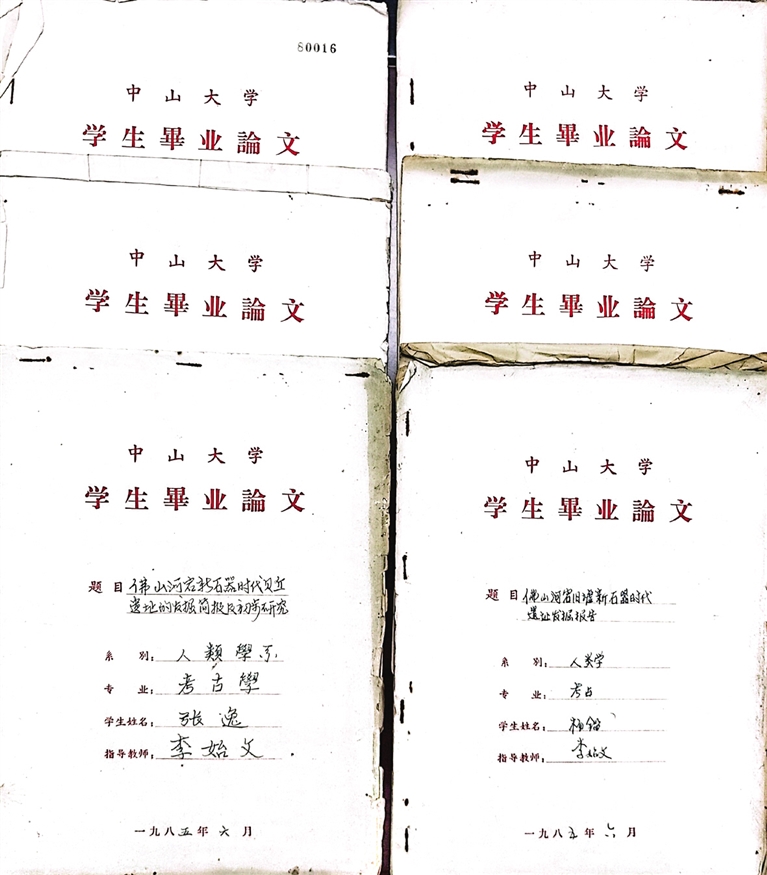 80016
中山大学
学生畢业論文
中山大学
学生畢业論文
中山大学
学生畢业論文
题目 佛山河宕新石器时代贝丘
遗址的发掘简报及初步研究
系别: 人類學系
专业: 考古學
学生姓名: 张逸
指导教师: 李始文
一九八五年六月
中山大学
学生畢业論文
中山大学
学生畢业論文
中山大学
学生畢业論文
题目 佛山河宕旧墟新石器时代
遗址发掘报告
系别: 人类学
专业: 考古
学生姓名:
指导教师: 李始文
一九八五年六月